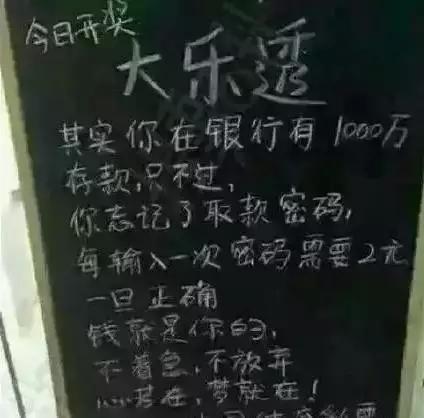 今日开奖
大乐透
其实你在银行有1000万
存款,只不过,
你忘记了取款密码,
每输入一次密码需要2元
一旦正确
钱就是你的,
不着急,不放弃
若在,梦就在!